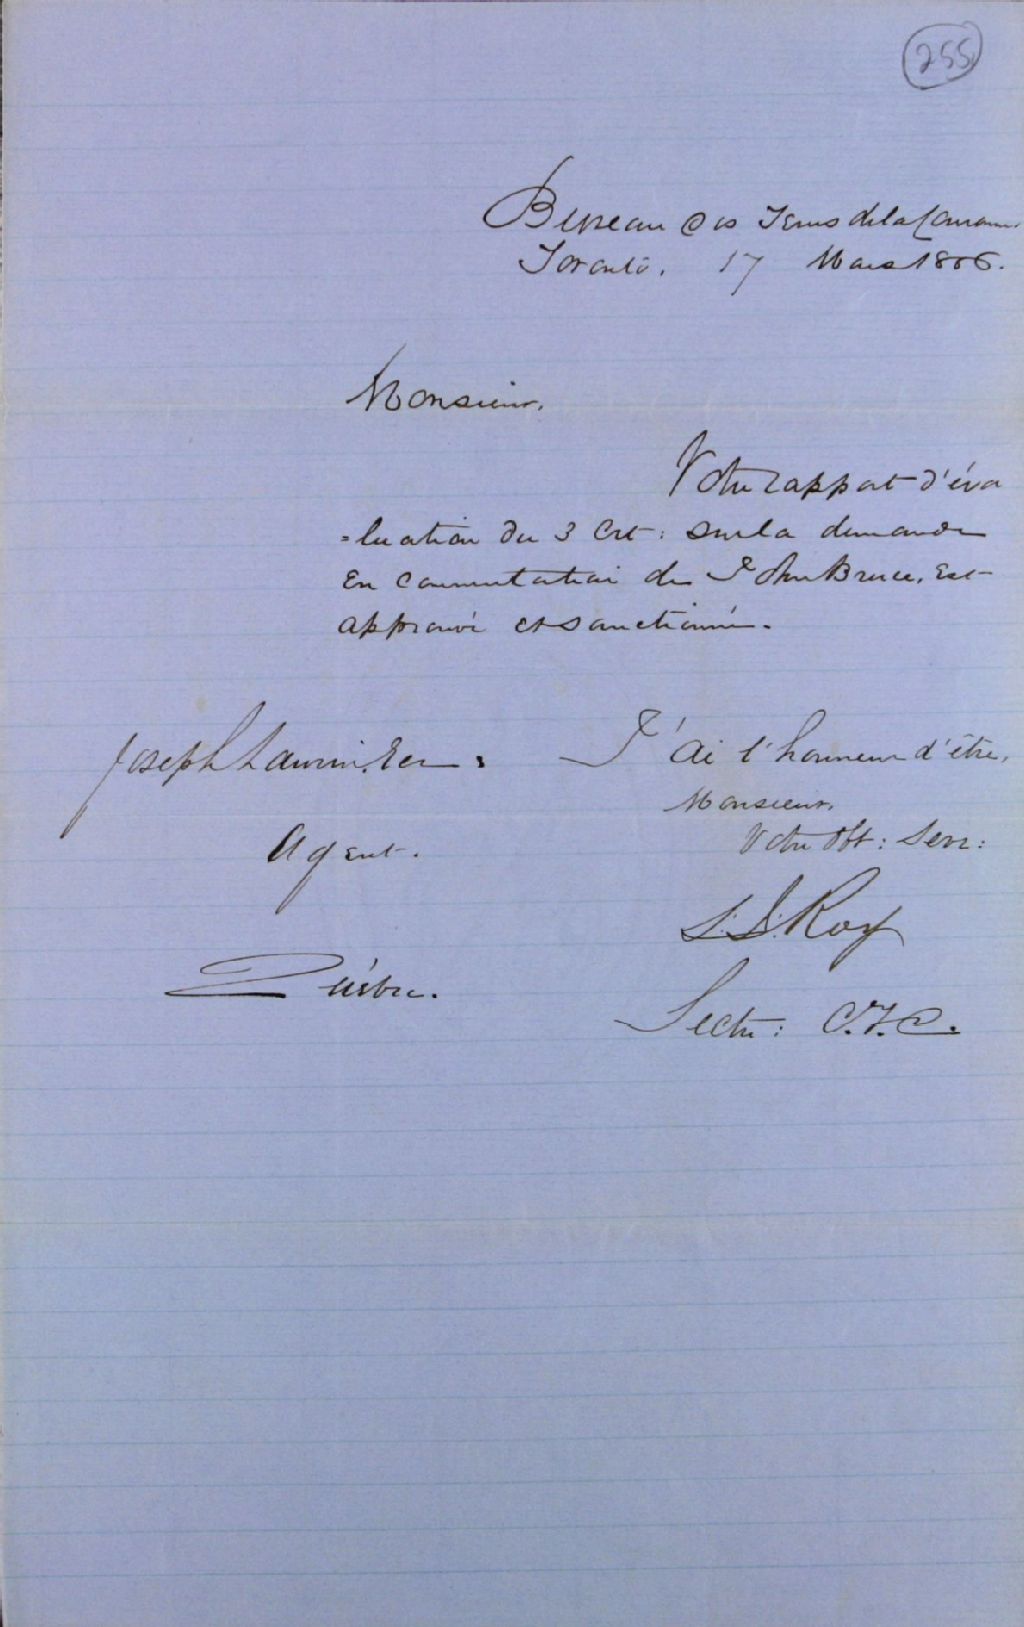 255
Bureau des Terres de la Couronne
Toronto. 17 Mars 1856.
Monsieur,
Votre rapport d'éva
=luation du 3 Crt: sur la demande
en commutation de John Bruce, est
approuvé et sanctionné.
J'ai l'honneur d'être,
Monsieur,
Votre Obt: Serr:
Roy
Secte: C.T.C.
Joseph Laurin, Ecr:
Agent.
Québec.